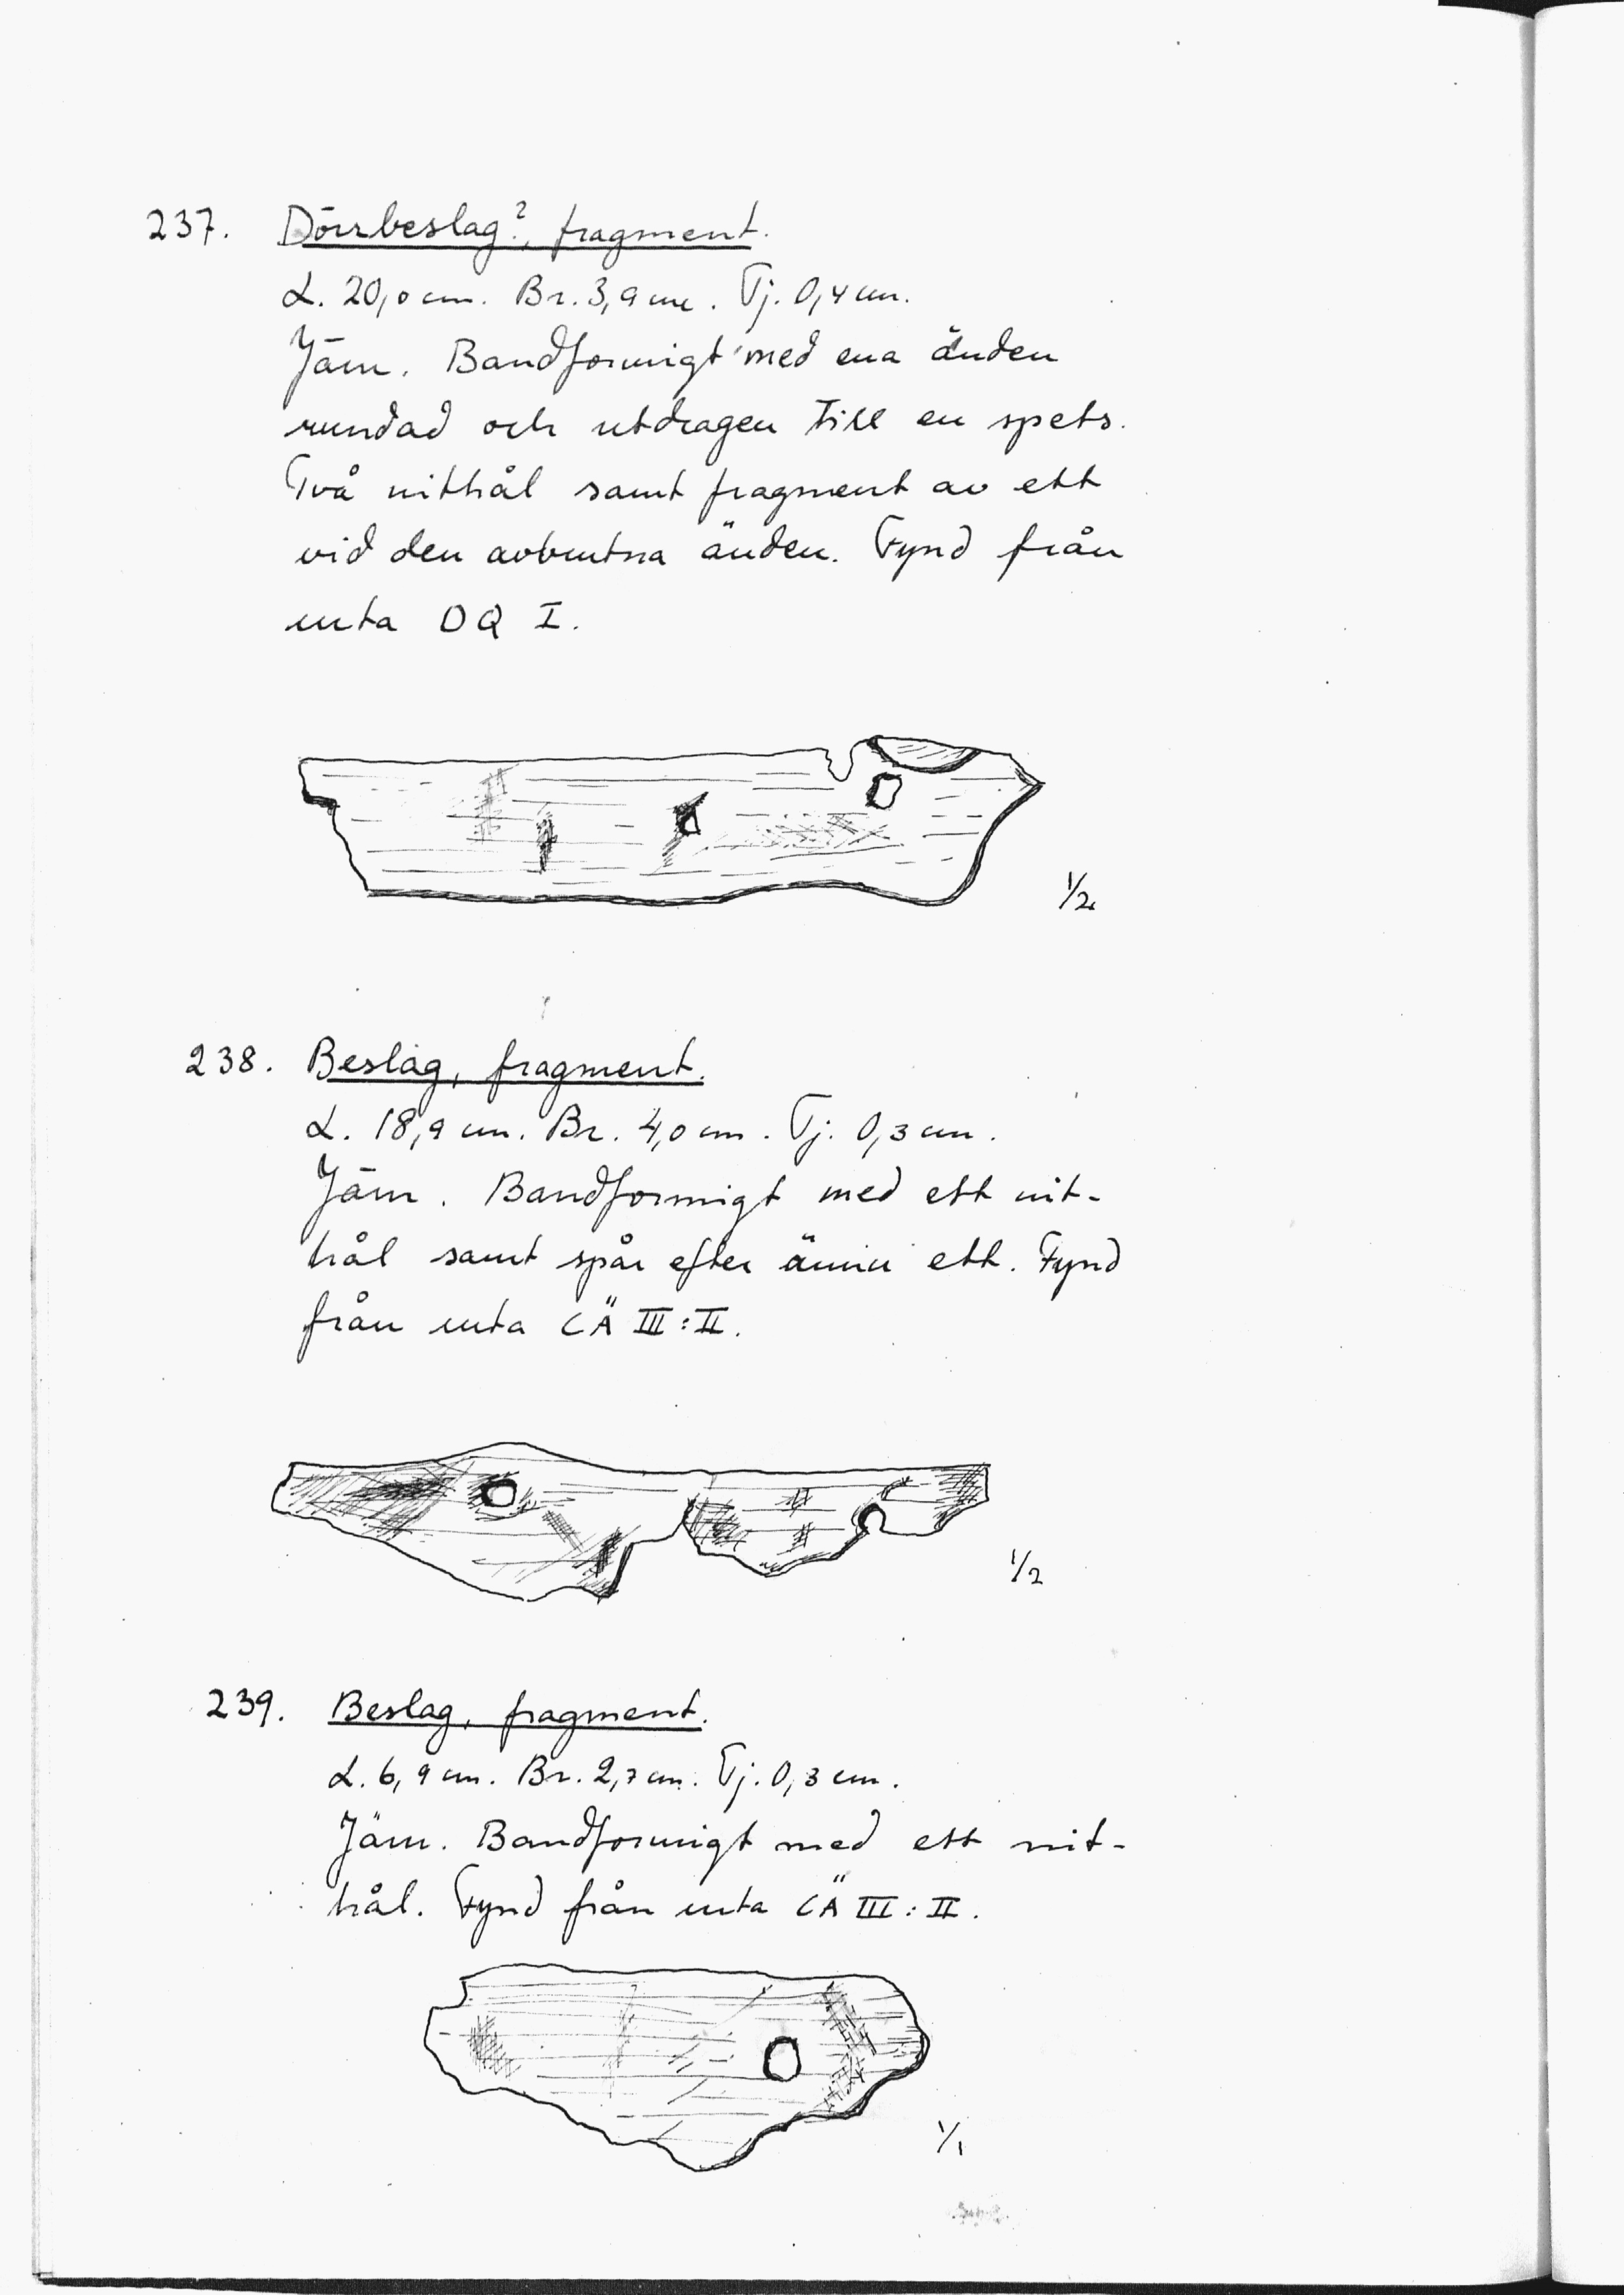 237. Dörrbeslag?, fragment.
L. 20,0 cm. Br. 3,9 cm. Tj. 0,4 cm.
Järn. Bandformigt med ena änden
rundad och utdragen till en spets.
Två nithål samt fragment av ett
vid den avbrutna änden. Fynd från
ruta DQ I.
1/2.
238. Beslag, fragment.
L. 18,9 cm. Br. 4,0 cm. Tj. 0,3 cm.
Järn. Bandformigt med ett nit-
hål samt spår efter ännu ett. Fynd
från ruta CÄ III:II.
1/2
239. Beslag, fragment.
L. 6,9 cm. Br. 2,7 cm. Tj. 0,3 cm.
Järn. Bandformigt med ett nit-
hål. Fynd från ruta CÄ III:II.
1/1